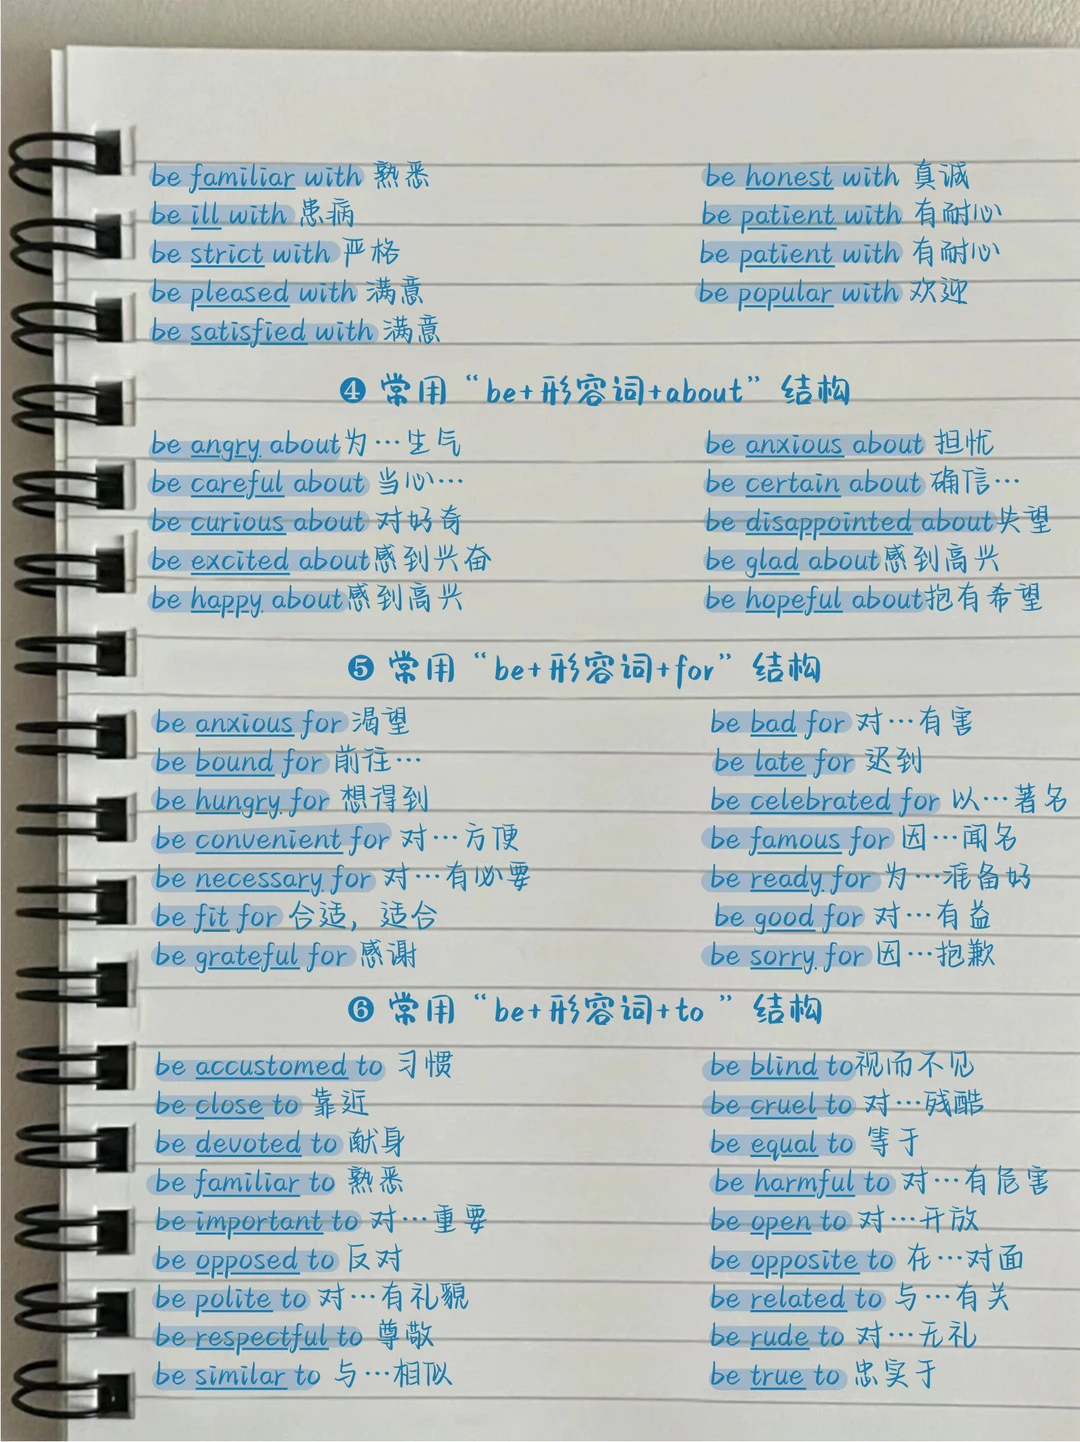 be familiar with 熟悉
be honest with 真诚
be ill with 患病
be patient with 有耐心
be strict with 严格
be patient with 有耐心
be pleased with 满意
be popular with 欢迎
be satisfied with 满意
❹ 常用“be+形容词+about”结构
be angry about为…生气
be anxious about 担忧
be careful about 当心…
be certain about 确信…
be curious about 对好奇
be disappointed about失望
be excited about感到兴奋
be glad about感到高兴
be happy about感到高兴
be hopeful about抱有希望
❺ 常用“be+形容词+for”结构
be anxious for 渴望
be bad for 对…有害
be bound for 前往…
be late for 迟到
be hungry for 想得到
be celebrated for 以…著名
be convenient for 对…方便
be famous for 因…闻名
be necessary for 对…有必要
be ready for 为…准备好
be fit for 合适，适合
be good for 对…有益
be grateful for 感谢
be sorry for 因…抱歉
❻ 常用“be+形容词+to ”结构
be accustomed to 习惯
be blind to视而不见
be close to 靠近
be cruel to 对…残酷
be devoted to 献身
be equal to 等于
be familiar to 熟悉
be harmful to 对…有危害
be important to 对…重要
be open to 对…开放
be opposed to 反对
be opposite to 在…对面
be polite to 对…有礼貌
be related to 与…有关
be respectful to 尊敬
be rude to 对…无礼
be similar to 与…相似
be true to 忠实于